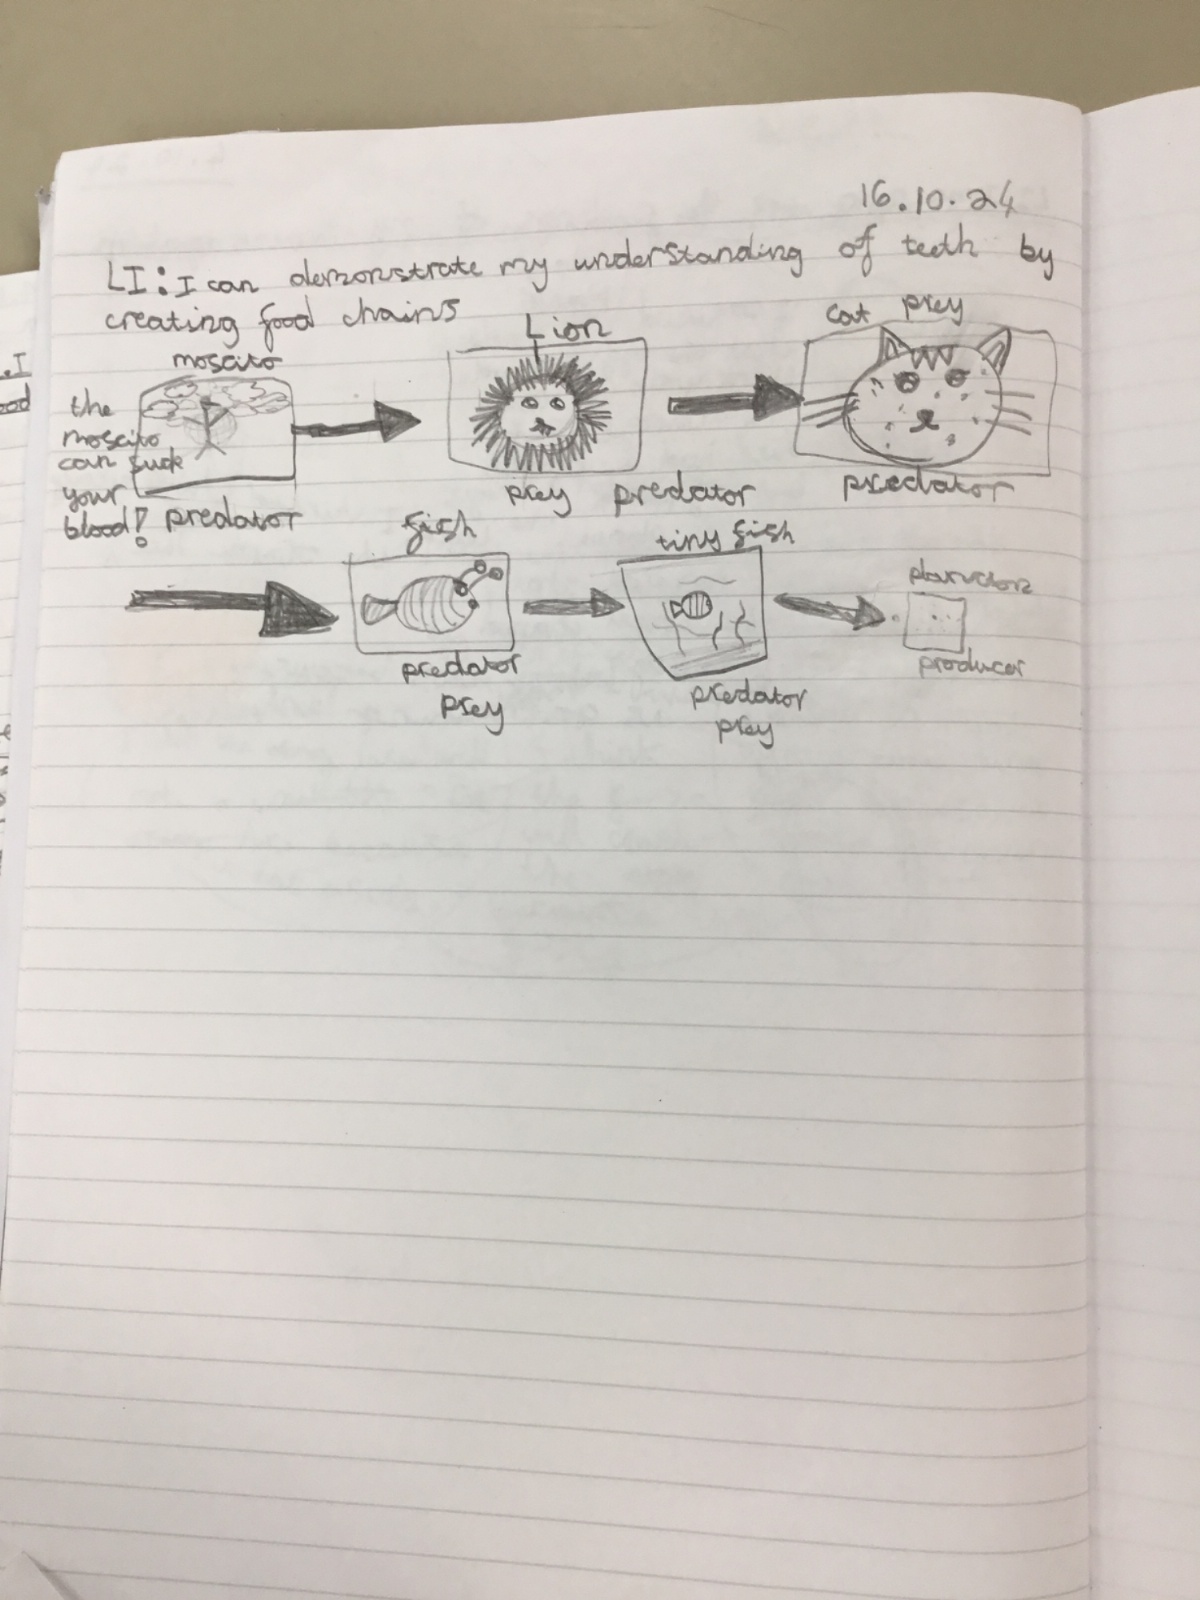 16.10.24
LI: I can demonstrate my understanding of teeth by
creating food chains
moscito
the
moscito
can suck
your
blood!
predator
Lion
prey predator
cat prey
predator
fish
predator
prey
tiny fish
predator
prey
producer